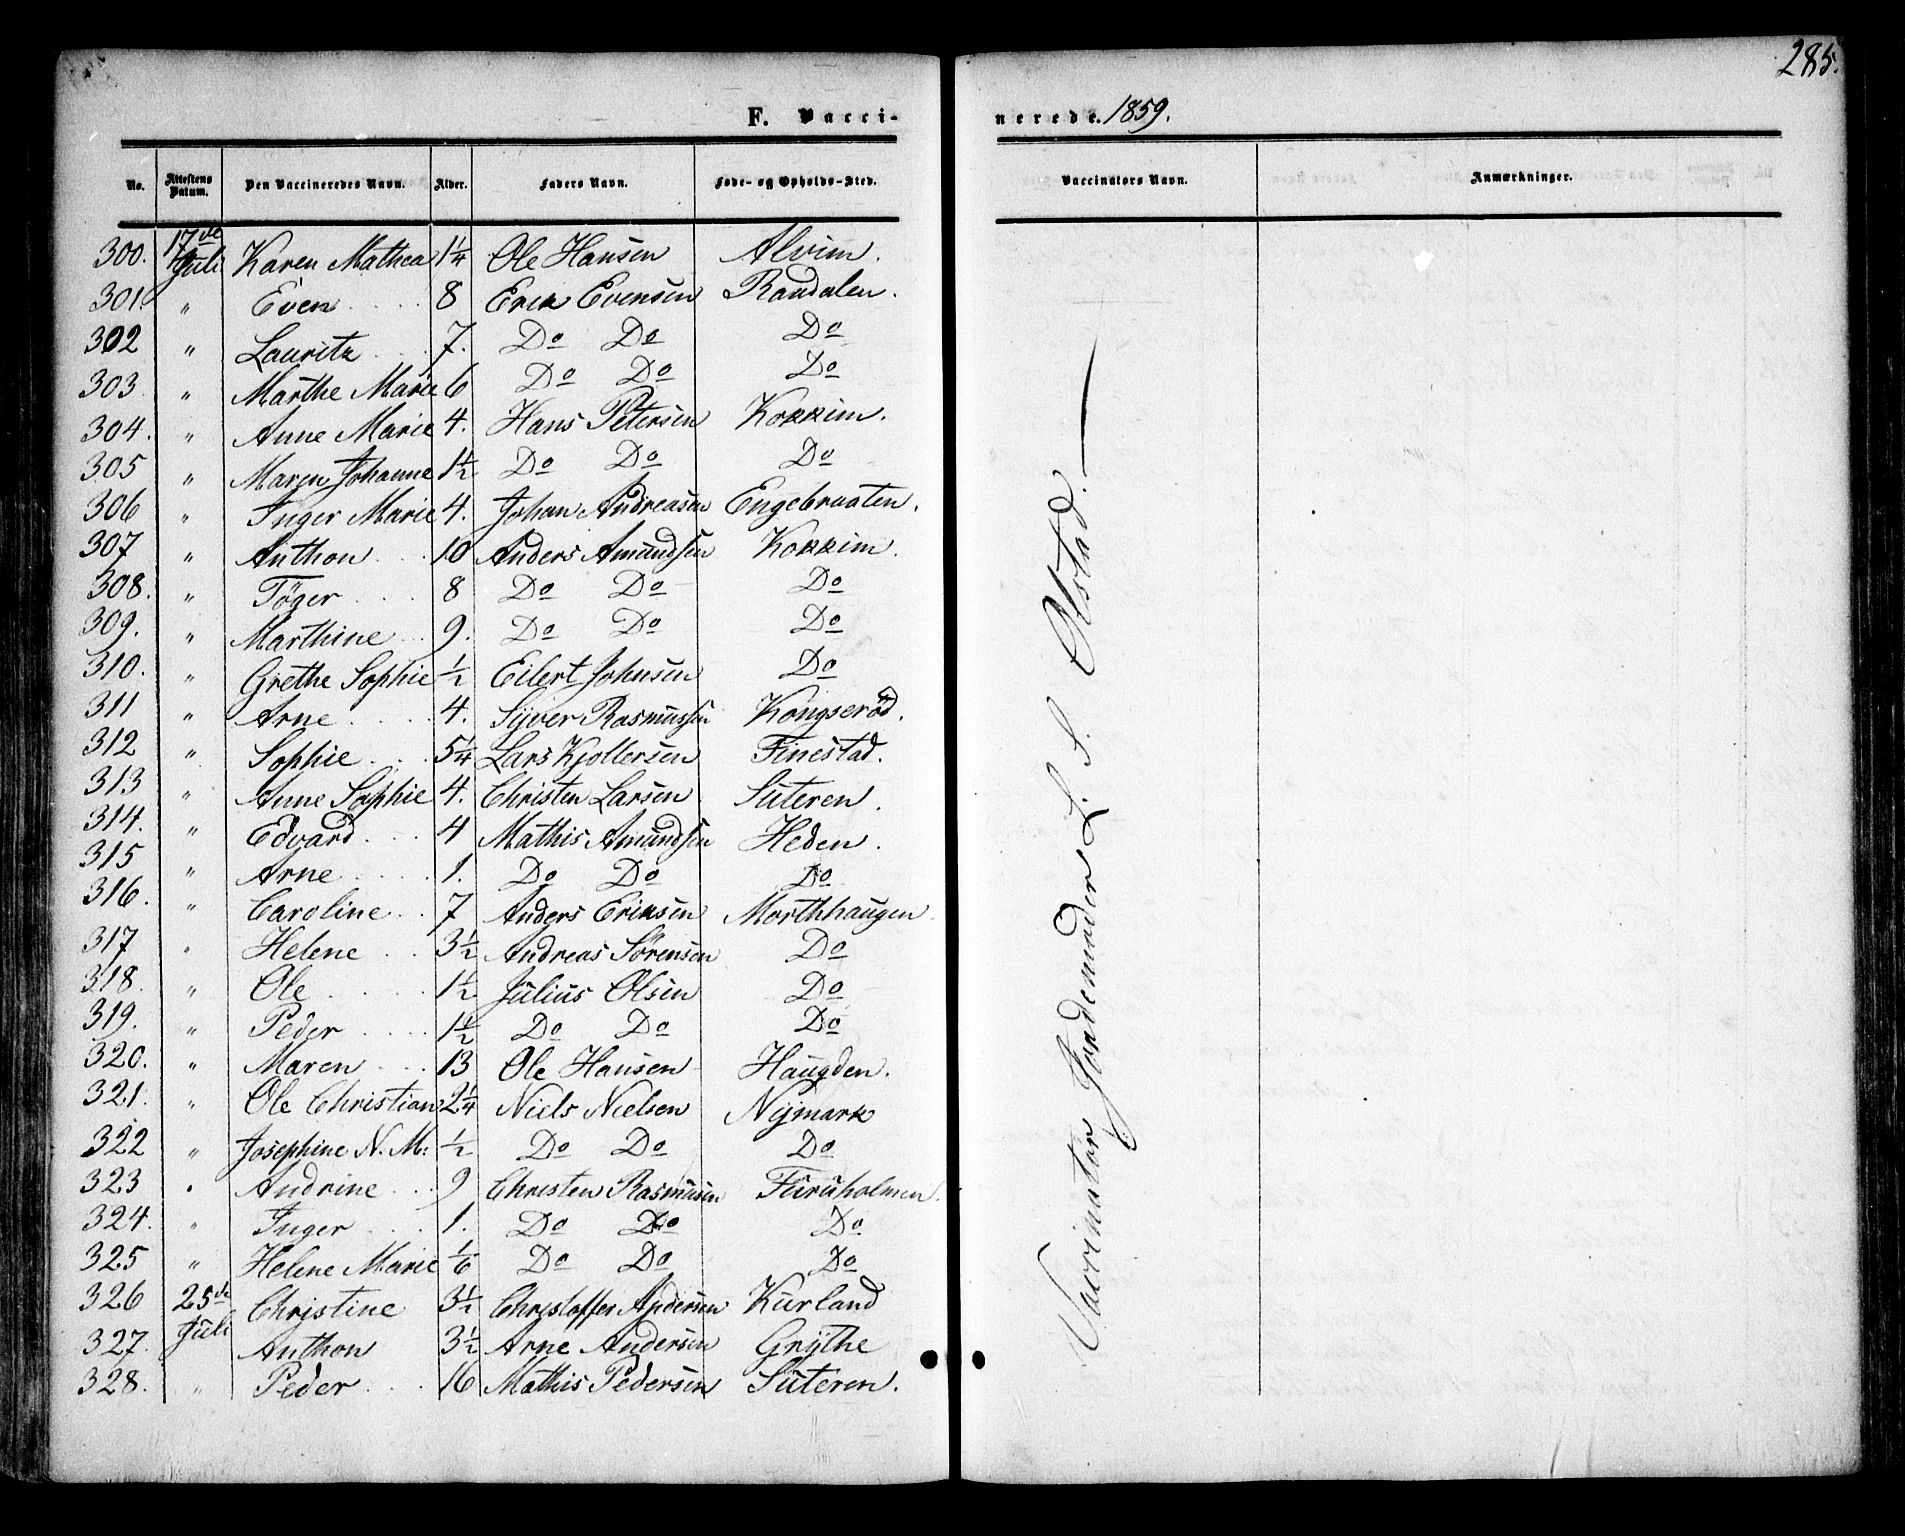 285.
F. Vaccinerede. 1859.
No. Attestens Datum. Den Vaccineredes Navn. Alder. Faders Navn. Føde- og Opholds-Sted. Vaccinators Navn. Anmærkninger.
300. 17de Juli Karen Mathea 1¼ Ole Hansen Alvim.
301. " Even 8 Erik Evensen Raudalen.
302 " Lauritz 7. Do Do Do
303 " Marthe Marie 6 Do Do Do
304. " Anne Marie 4. Hans Petersen Kokkim.
305 " Maren Johanne 1½ Do Do Do
306 " Inger Marie 4. Johan Andreasen Engebraaten.
307 " Anthon 10 Anders Amundsen Kokkim.
308. " Töger 8 Do Do Do
309. " Marthine 9. Do Do Do
310. " Grethe Sophie ½ Eilert Johnsen Do
311 " Arne 4. Syver Rasmussen Kongseröd.
312 " Sophie 5¼ Lars Kjollersen Finestad.
313 " Anne Sophie 4. Christen Larsen Suteren.
314. " Edvard 4 Mathis Amundsen Heden.
315 " Arne 1. Do Do Do
316. " Caroline 7 Anders Eriksen Morthhaugen
317 " Helene 3½ Andreas Sörensen Do
318. " Ole 1½ Julius Olsen Do
319. " Peder 1½ Do Do Do
320. " Maren 13 Ole Hansen Haugden.
321. " Ole Christian 2¼ Niels Nielsen Nymark
322 " Josephine N. M: ½ Do Do Do
323 " Andrine 9 Christen Rasmusen Furuholmen.
324. " Inger 1. Do Do Do
325 " Helene Marie 1/6 Do Do Do
326 25de Juli Christine 3½ Christoffer Andersen Kurland
327. Anthon 3½ Arne Andersen Grythe
328. " Peder 16 Mathis Pedersen Suteren.
Vaccinator Jordemoder L. S. Olstad.